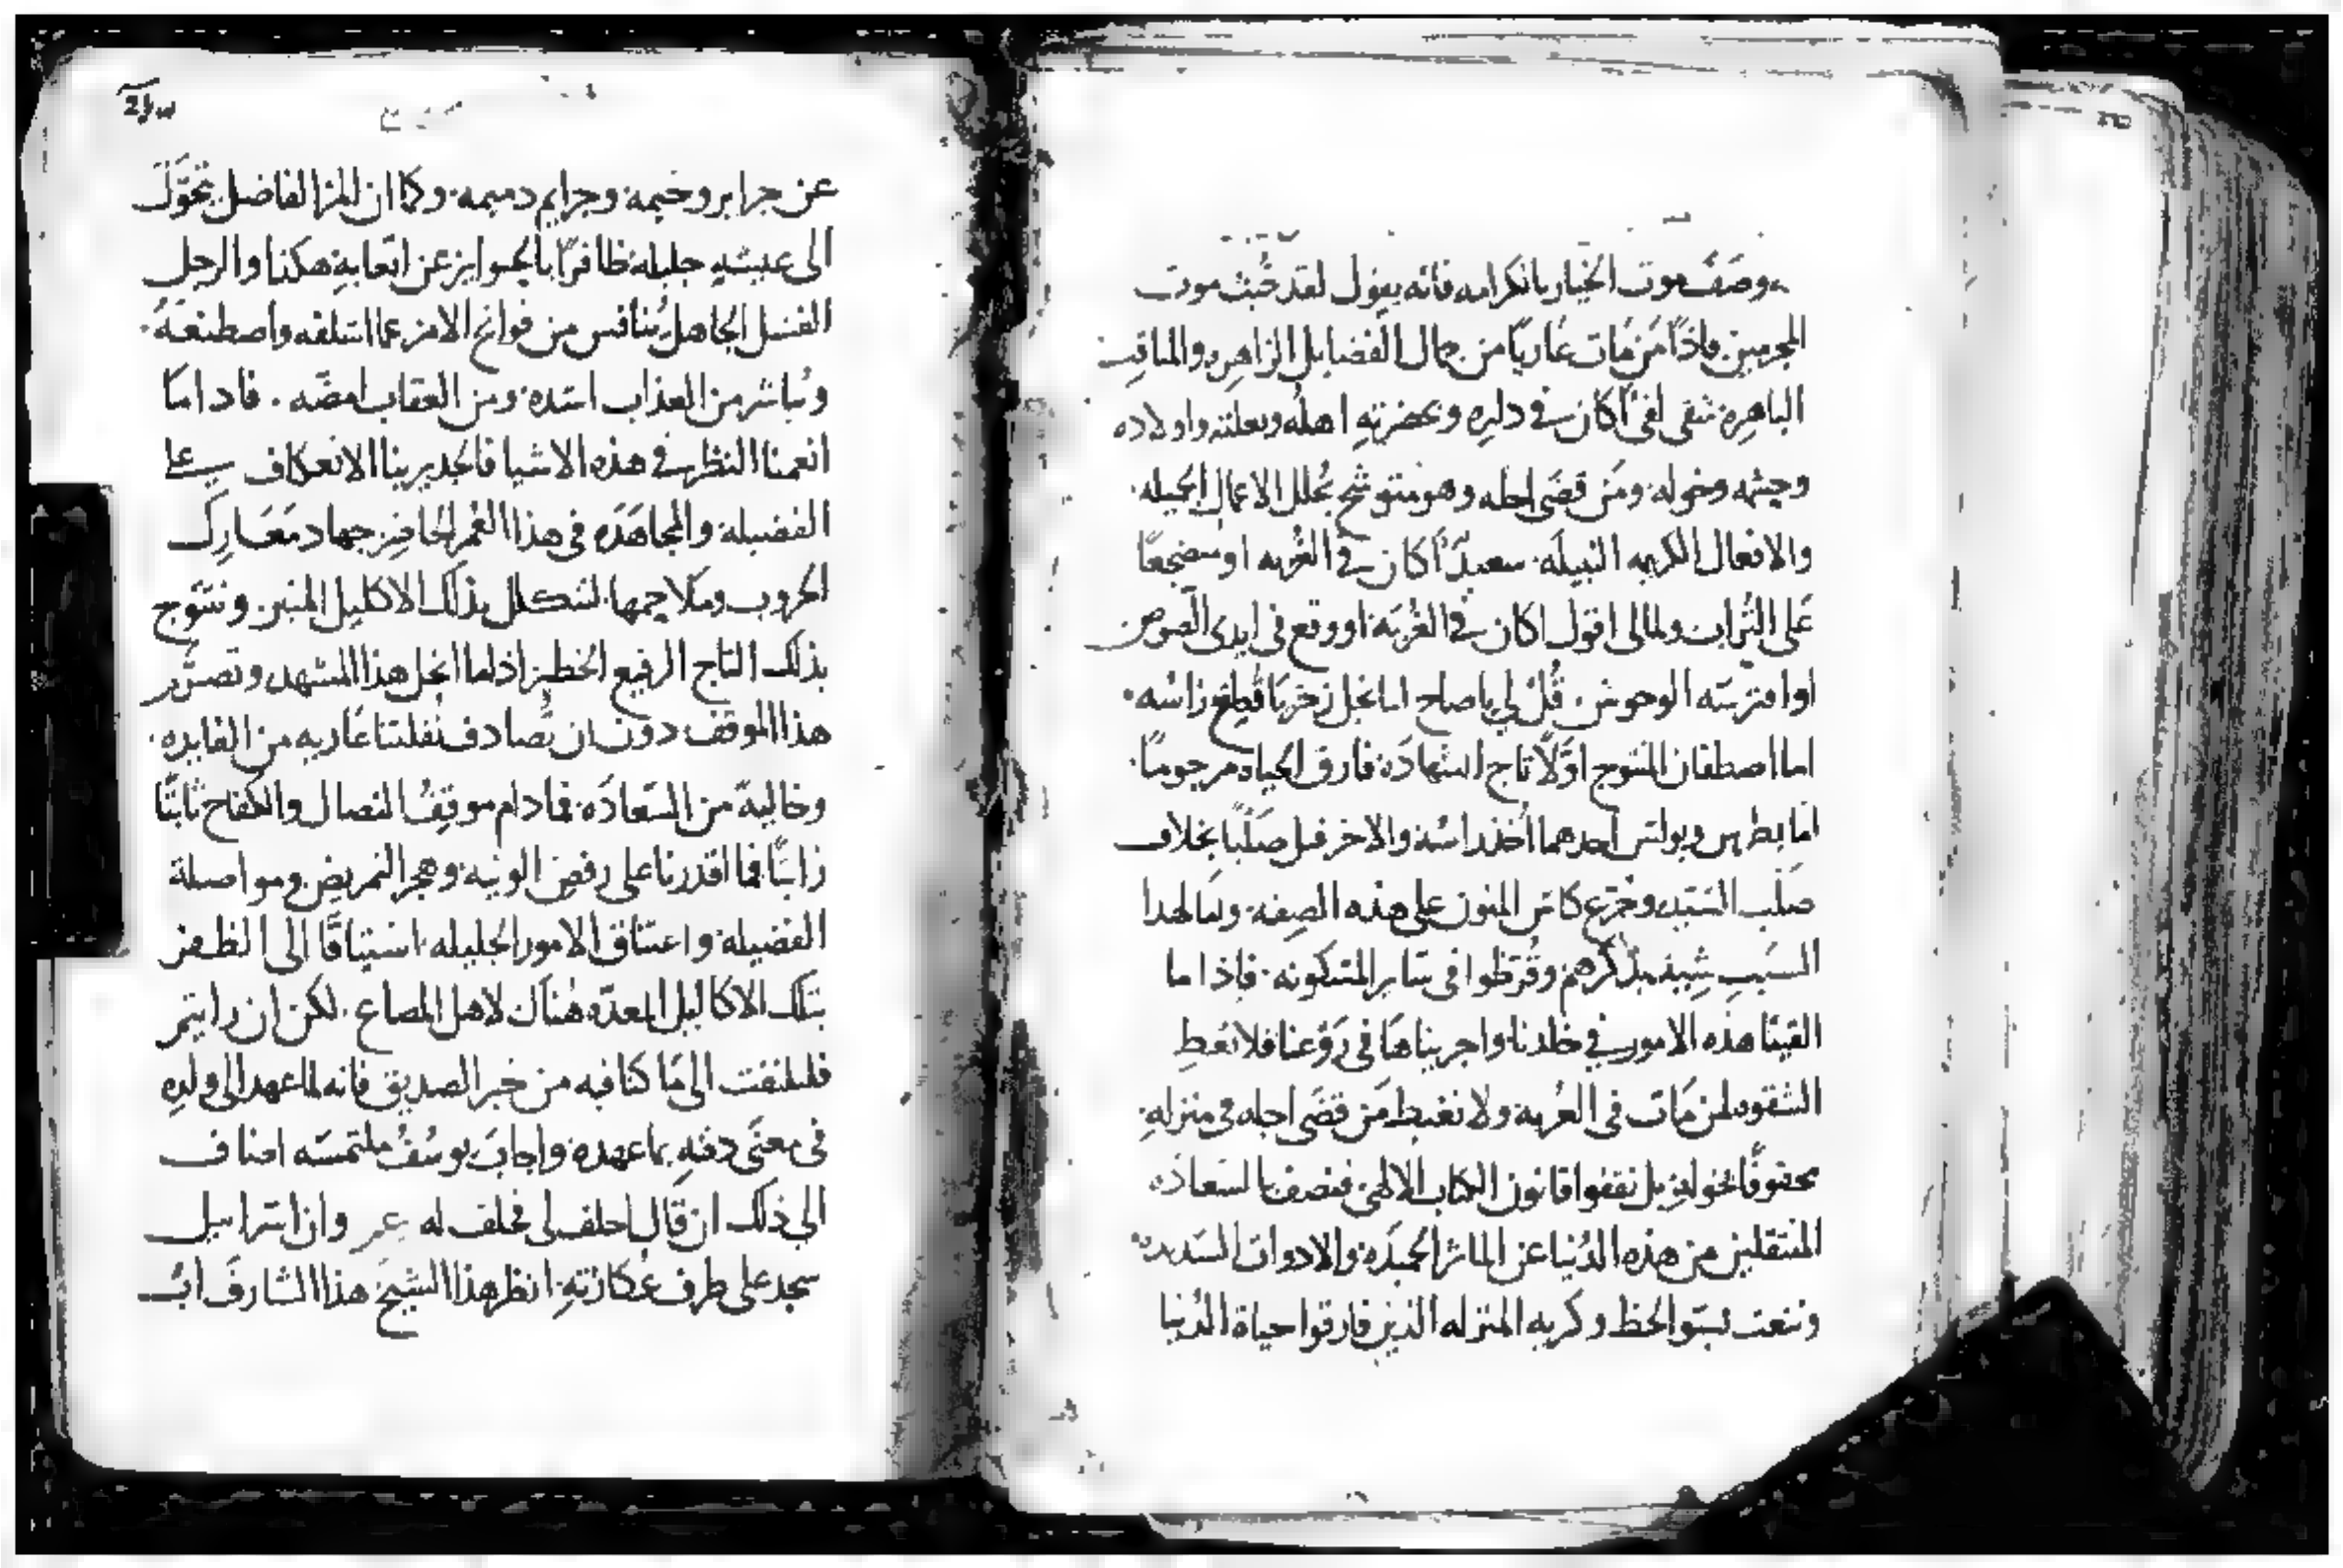 ووصف موت الخيار بالكرامه فانه يقول لقد خبث موت
المجرمين فاذًا مَن مات عاريًا من جمال الفضايل الزاهره والمناقب
الباهره شقى لفى اكان في داره وبحضرته اهله وبعلته واولاده
وجيشه وخوله ومَن قضَى اجله وهو متوشح بحُلل الاعمال الجميله
والافعال الكريمه النبيله سعيدٌ اكان في الغُربه او مضجعًا
عَلى التُراب ولمالى اقول اكان في الغُربَة او وقع في ايدى اللصوص
او افترسَته الوحوش قُل لي ياصاح اما نجل زخريا قُطع رأسه
اما اصطفان المتتوج اوّلًا تاج الشهادَه فارق الحياه مرجومًا
اما بطرس وبولس احدهما اُخذ رأسه والاخر قتل صَلبًا بخلاف
صَلب السَيّد وجُرع كاس المنون على هذه الصفه ولما لهدا
السَبب شِيد بذكرهم وقُرّظوا في سَاير المسكونه فاذا ما
القينَا هذه الامور في خلدنا واجريناهَا في رَوْعنا فلا نُعطِ
الشقوه لمن مَات في الغُربه ولا نغبط مَن قضَى اجله في منزلهِ
محفوفًا بخوله بل نقفوا قانون الكتاب الالهى فنصف بالسَعادَه
المنتقلين من هذه الدُنيا عن الماثر الحميدَه والادوات السَديده
وننعت بسَوّ الحظ وكريه المنزله الذين فارقوا حياة الدُنيا
عن جراير وخيمه وجرايم دميمه وكما ان المرَ الفاضل يتحَوَّل
الى عيشهِ جليله ظافرًا بالجوايز عن اتعابهِ هكذا والرجل
الفسل الجاهل يُنافس من فواتح الامر عما استلفه واصطنعَهُ
ويُباشر من العذاب اشده ومن العقاب امضّه فاداما
انعمنا النظر في هذه الاشيا فالجدير بنا الانعكاف على
الفضيله والمجاهَدَه في هذا العُمر الحاضر جهاد مَعَارِك
الحروب وملاحِمها لنتكلل بذلك الاكليل المنير ونتتوج
بذلك التاج الرفيع الخطر اذاما انحل هذا المشهد وتصرّم
هذا الموقف دون ان تُصادف نُقلتنا عَاريه من الفايده
وخالية من السَعادَه فمادام موقِفُ النصال والكفاح ثابتًا
راتبًا فما اقدرنا على رفض الونيه وهجر التمريض ومواصلة
الفضيله واعتناق الامور الجليله اشتياقًا الى الظفر
بتلك الاكاليل المعدّه هُناك لاهل المصاع لكن ان رايتم
فلنلتفت الى مَا كنا فيه من خبر الصديق فانه لما عهد الى ولدهِ
في معنَى دفنهِ بما عهده واجابَ يوسُفُ ملتمسَه اضاف
الى ذلك ان قال احلف لى فحلف له وان اسراييل
سجد على طرف عُكازتهِ انظر هذا الشيخ هذا الشارفَ ابُ